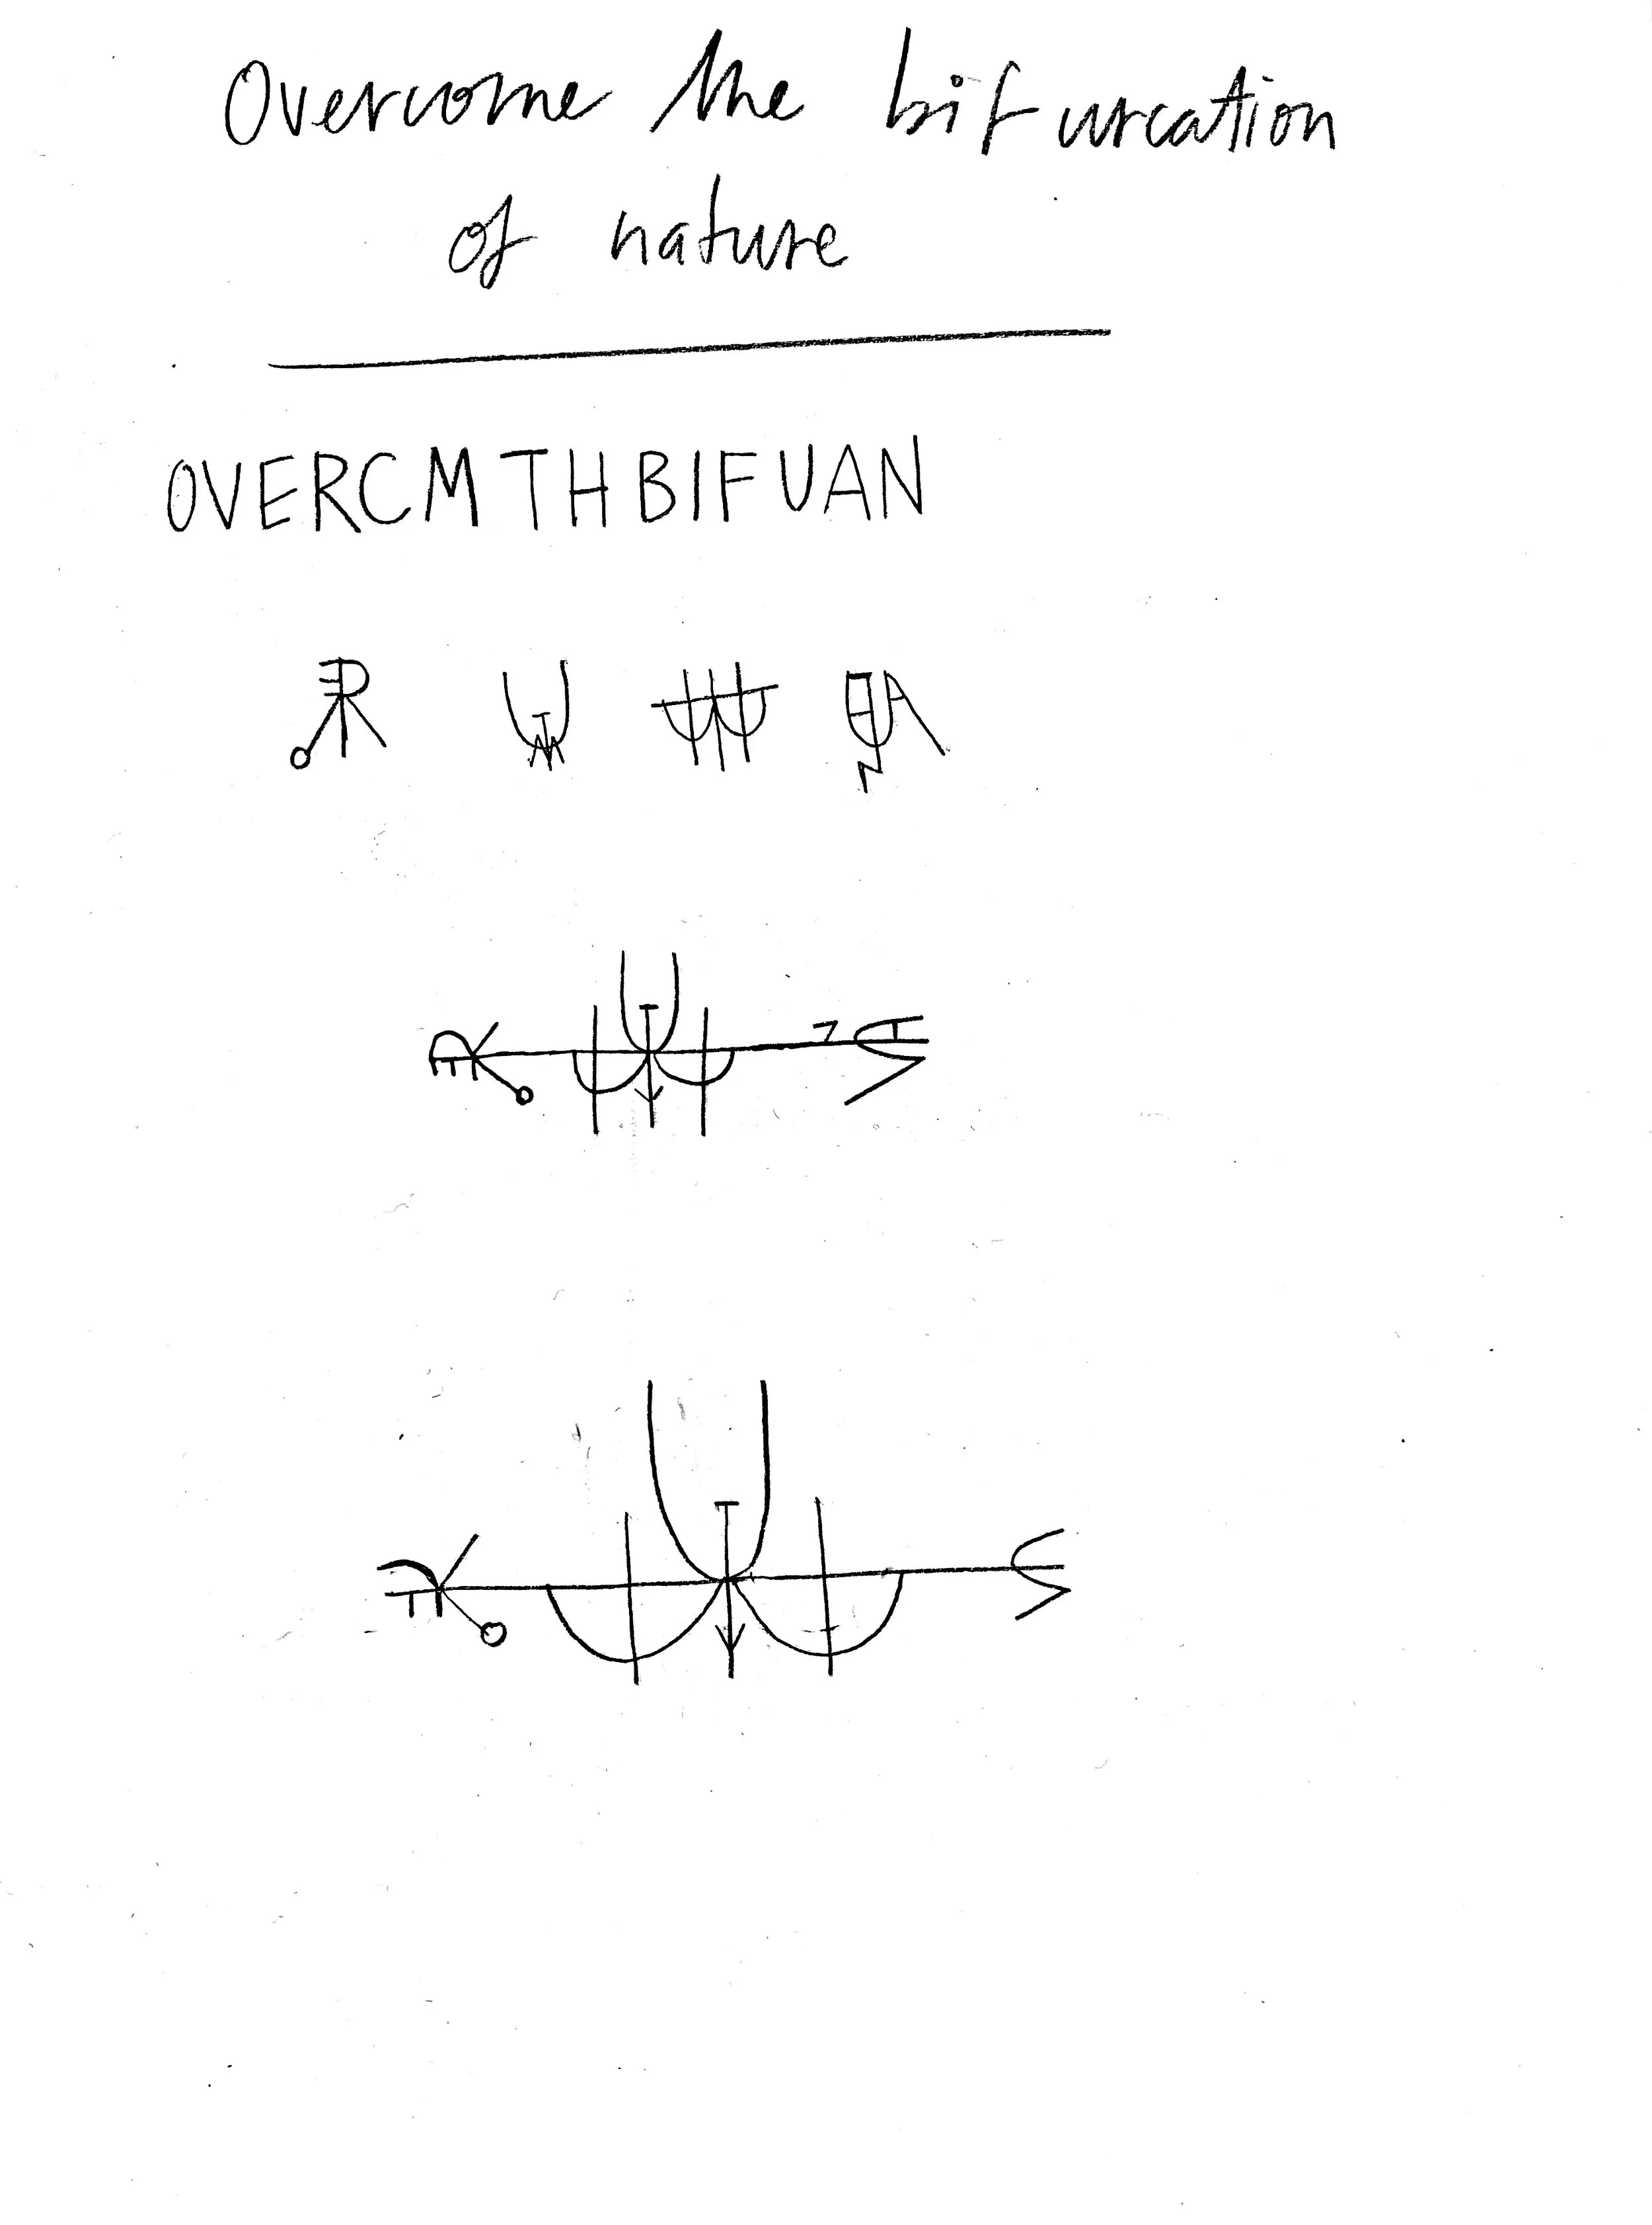 Overcome the bifurcation
of nature
OVERCMTHBIFUAN